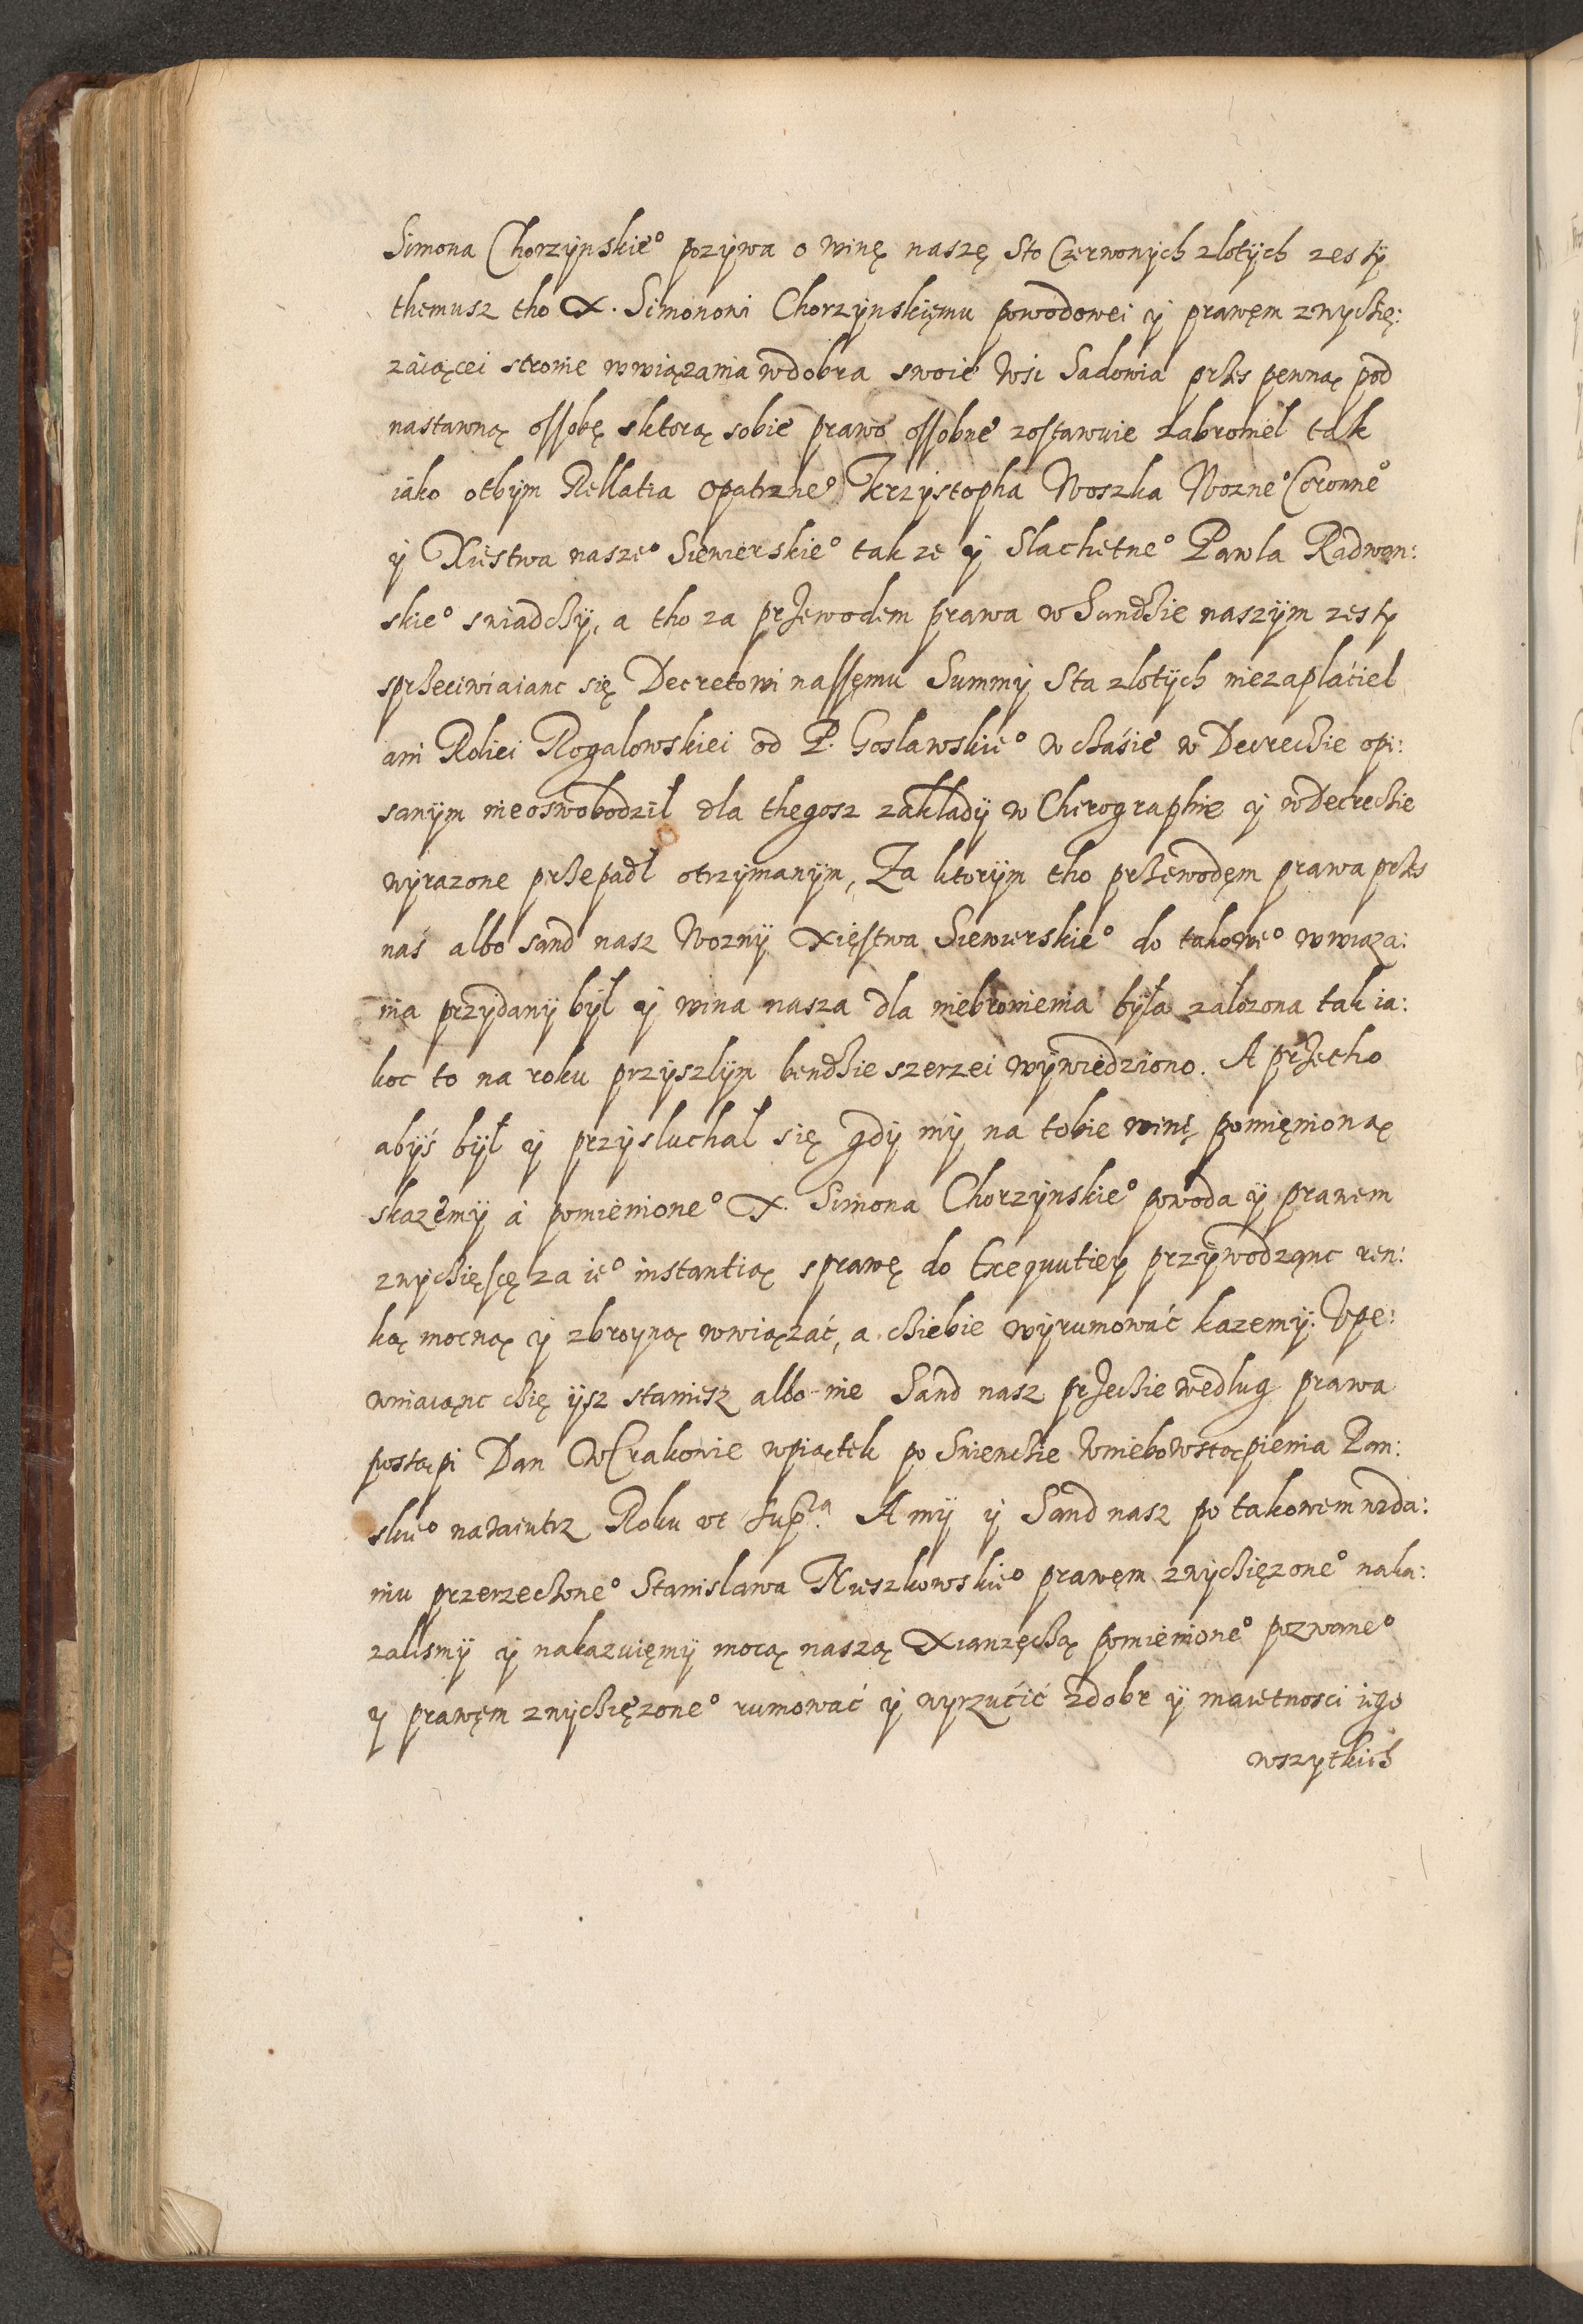 Simona Chorzynskie° pozywa o winę naszę Sto Czerwonych zlotych zes ty
themusz tho X. Simonowi Chorzynskięmu powodowei y prawęm zwychię:
záiącei stronie wwiązania wdobra swoie Wsi Sadowia przes pewną pod
nastawną ossobę sktorą sobie prawo ossobne zostawuie zabroniel tak
iáko otbym Rellatia Opatrzne° Krzystopha Woszka Wozne° Coronne°
y Xiestwa nasze° Siewierskie° tak ze y Slachetne° Pawla Radwan:
skie° sniadchy, a tho za przewodem prawa w Sandzie naszym zes ty
sprzeciwiaianc się Decretowi nassęmu Summy Sta zlotych niezapláciel
ani Roliei Rogalowskiei od P. Goslawskie° w cháśie w Decrechie opi:
sanym nieoswobodzil dla thegosz zaklady w Chirographie y wDecrechie
wyrazone przepadł otrzymanym, Za ktorym tho przewodęm prawa przes
nas albo sand nasz Wozny Xięstwa Siewierskie° do takowe° wwiąza:
nia przydany był y wina nasza dla niebronienia była zalozona tak ia:
koc to na roku przyszlym bendzie szerzei wywiedziono. A przetho
abyś był y przysluchał się gdy my na tobie winę pomięnioną
skazęmy á pomienione° X. Simona Chorzynskie° powoda y prawem
zwychięscę za ie° instantią sprawę do Exequutiey przywodząnc ren:
ką mocną y zbroyną wwiązáć, a chiebie wyrumowáć kazemy. Upe:
wniaiąnc chię ysz staniesz albo nie Sand nasz przechie według prawa
postąpi Dan WCrakowie wpiątek po Swienchie Wniebowstąpienia Pan:
skie° nazaiutrz Roku ut supra. A my y Sand nasz po takowem wzda:
niu przerzechone° Stanislawa Kuszkowskie° prawęm zwychięzone° naka:
zalismy y nakazuięmy mocą naszą Xianzęchą pomienione° pozwane°
y prawęm zwychięzone° rumowáć y wyrzucić zdobr y maietnosci iego
wszytkich